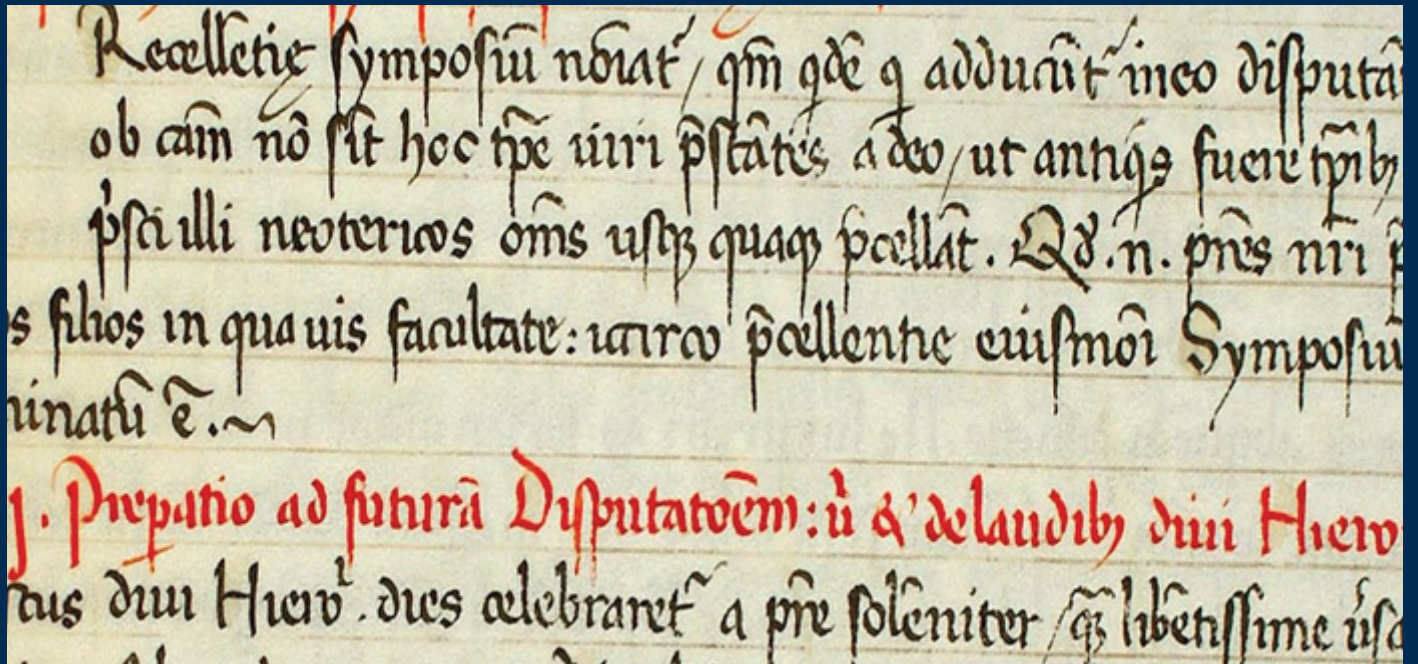 Recell̄etię symposiū nōiat᷑ / qm̄ qdē q adducūt᷑ in eo disputā
ob cām nō sīt hoc tp̄e uiri p̄stātes adeo / ut antiqs fuere tp̄ibꝫ
p̓sci illi neotericos om̄s usqꝫ quaqꝫ p̄cellāt. Qđ .n. pr̄es nr̄i p̄
s filios in quauis facultate: iccirco p̄cellentie eiusmōi Symposiū
inatū ē .~
j. Preꝑatio ad futurā Disputatōem: u̓ & de laudibꝫ diui Hiero
ctus diui Hiero᷑. dies celebraret᷑ a pr̄e solēniter / libētissime